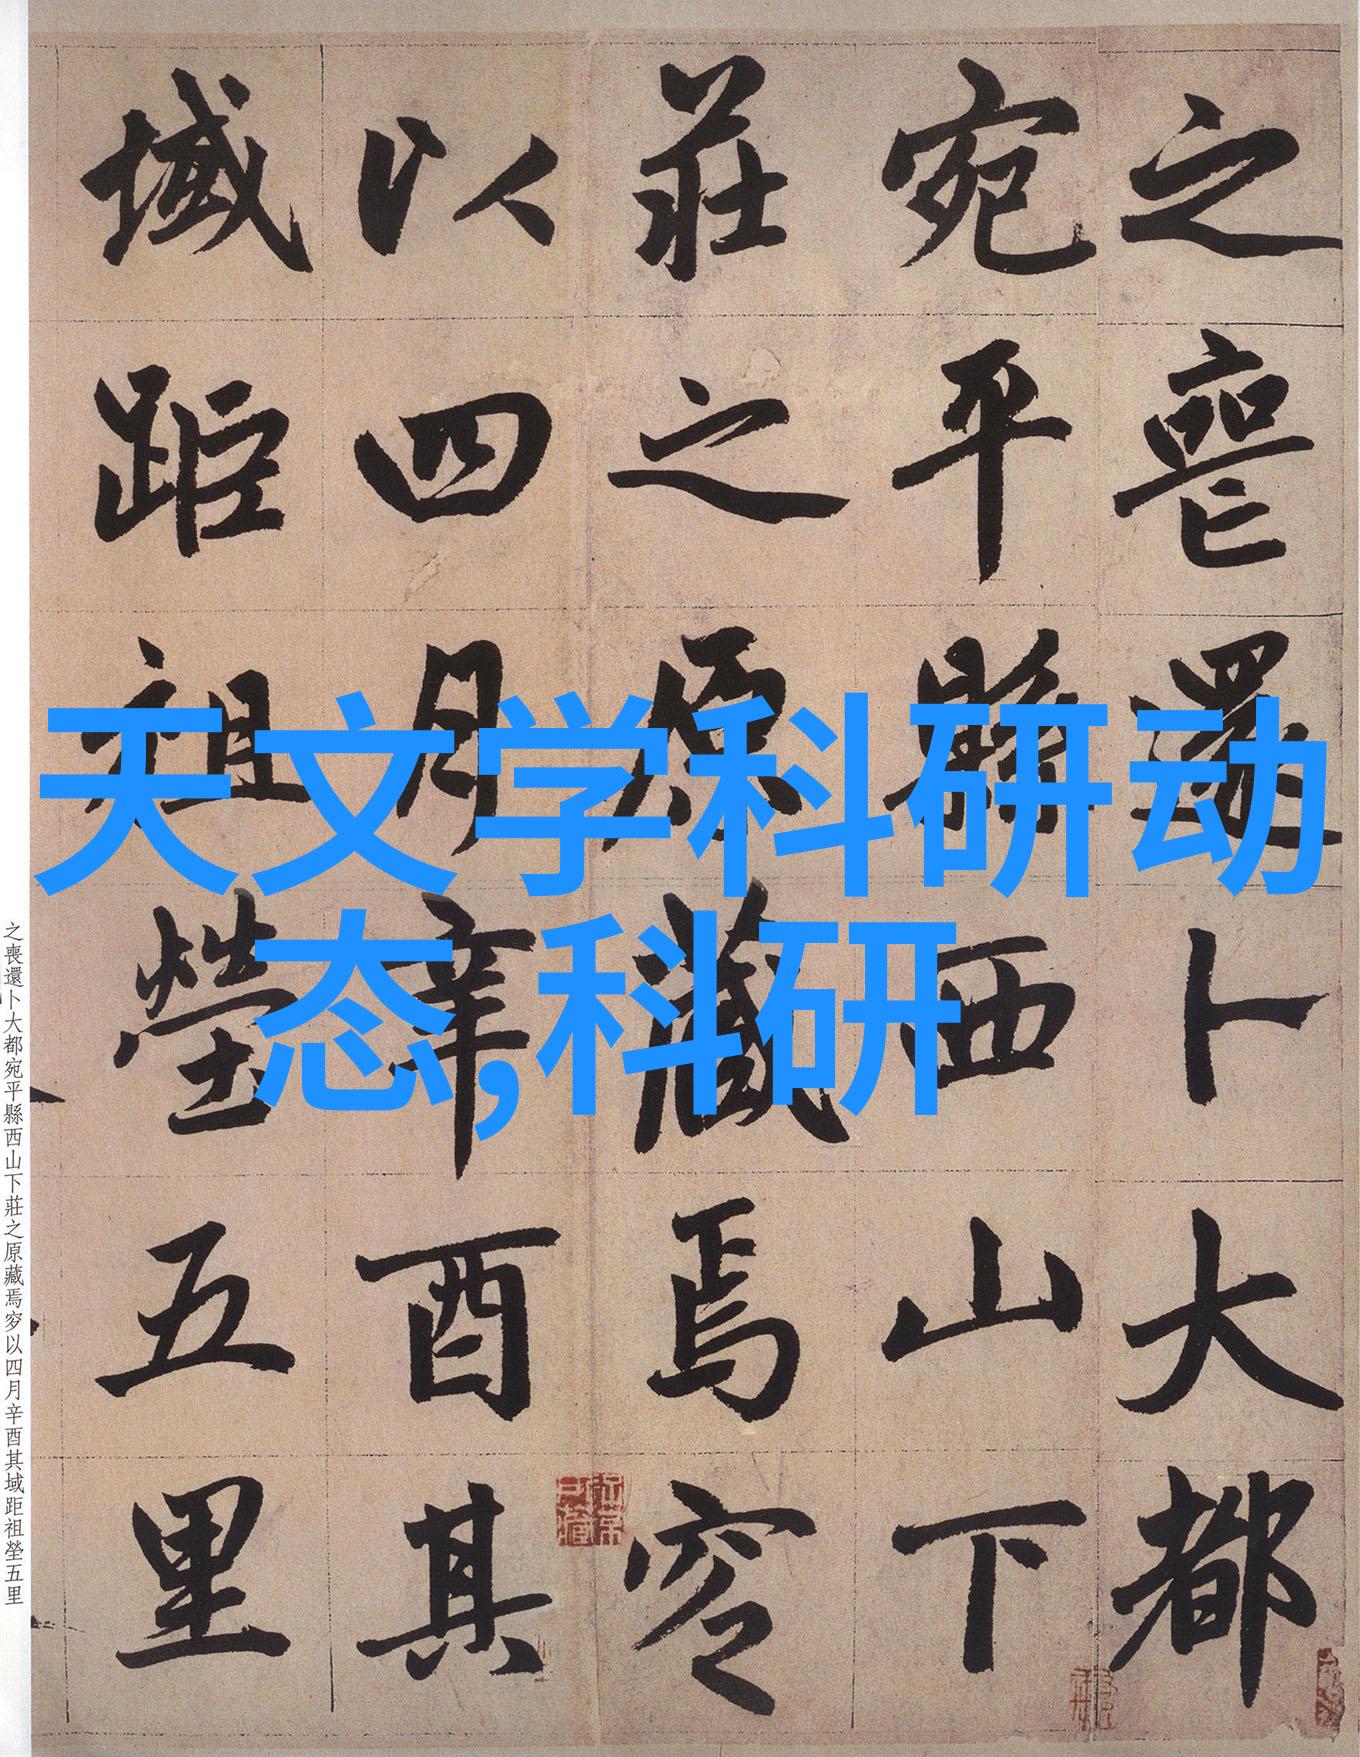 之喪還卜大都
宛平縣西山下
莊之原藏焉窆
以四月辛酉其
域距祖塋五里
天文学科研动
态,科研
之喪還卜大都宛平縣西山下莊之原藏焉窆以四月辛酉其域距祖塋五里